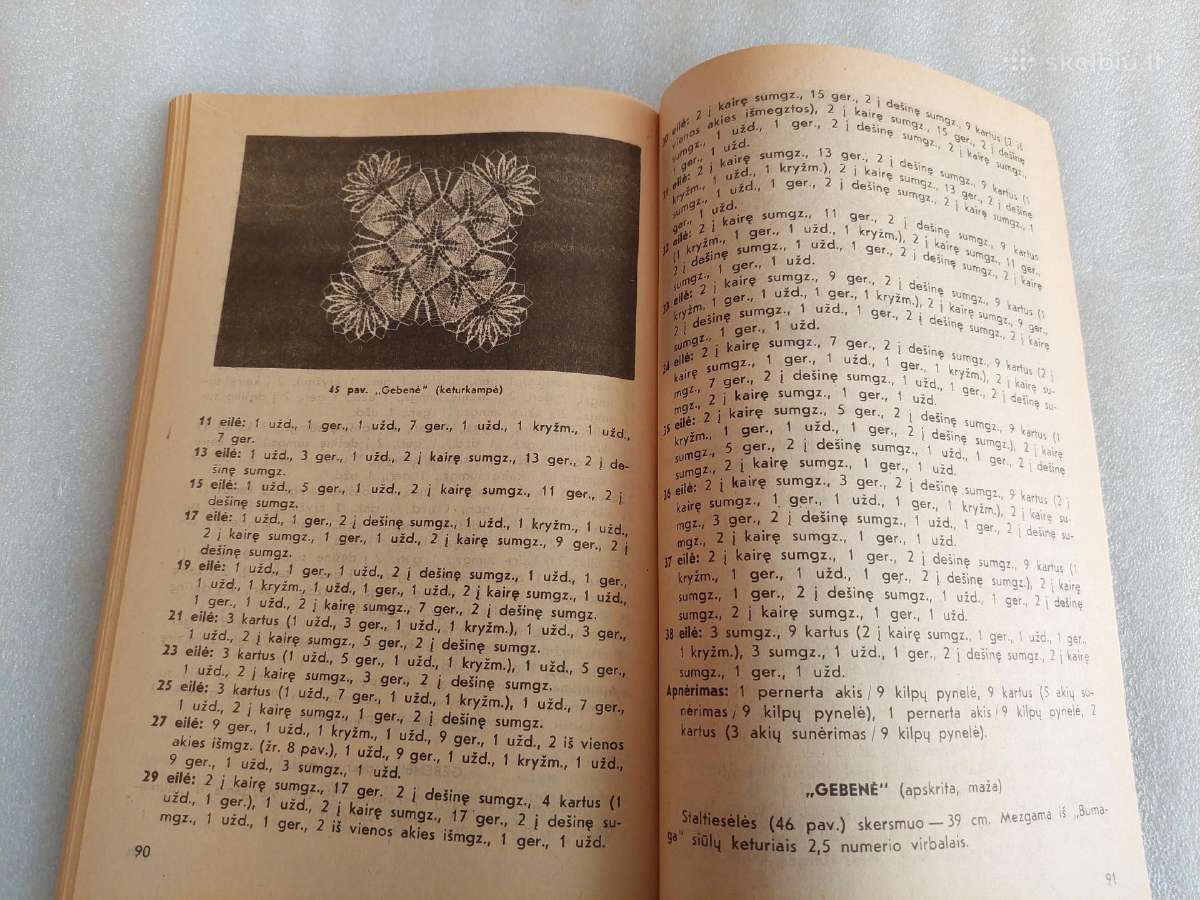 45 pav. „Gebenė“ (keturkampė)
11 eilė: 1 užd., 1 ger., 1 užd., 7 ger., 1 užd., 1 kryžm., 1 užd.,
7 ger.
13 eilė: 1 užd., 3 ger., 1 užd., 2 į kairę sumgz., 13 ger., 2 į de-
šinę sumgz.
15 eilė: 1 užd., 5 ger., 1 užd., 2 į kairę sumgz., 11 ger., 2 į
dešinę sumgz.
17 eilė: 1 užd., 1 ger., 2 į dešinę sumgz., 1 užd., 1 kryžm., 1 užd.,
2 į kairę sumgz., 1 ger., 1 užd., 2 į kairę sumgz., 9 ger., 2 į
dešinę sumgz.
19 eilė: 1 užd., 1 ger., 1 užd., 2 į dešinę sumgz., 1 užd., 1 ger.,
1 užd., 1 kryžm., 1 užd., 1 ger., 1 užd., 2 į kairę sumgz., 1 užd.,
1 ger., 1 užd., 2 į kairę sumgz., 7 ger., 2 į dešinę sumgz.
21 eilė: 3 kartus (1 užd., 3 ger., 1 užd., 1 kryžm.), 1 užd., 3 ger.,
1 užd., 2 į kairę sumgz., 5 ger., 2 į dešinę sumgz.
23 eilė: 3 kartus (1 užd., 5 ger., 1 užd., 1 kryžm.), 1 užd., 5 ger.,
1 užd., 2 į kairę sumgz., 3 ger., 2 į dešinę sumgz.
25 eilė: 3 kartus (1 užd., 7 ger., 1 užd., 1 kryžm.), 1 užd., 7 ger.,
1 užd., 2 į kairę sumgz., 1 ger., 2 į dešinę sumgz.
27 eilė: 9 ger., 1 užd., 1 kryžm., 1 užd., 9 ger., 1 užd., 2 iš vienos
akies išmgz. (žr. 8 pav.), 1 užd., 9 ger., 1 užd., 1 kryžm., 1 užd.,
9 ger., 1 užd., 3 sumgz., 1 užd.
29 eilė: 2 į kairę sumgz., 17 ger. 2 į dešinę sumgz., 4 kartus (1
užd., 1 ger.), 1 užd., 2 į kairę sumgz., 17 ger., 2 į dešinę su-
mgz., 1 užd., 1 ger., 2 iš vienos akies išmgz., 1 ger., 1 užd.
90
30 eilė: 2 į kairę sumgz., 15 ger., 2 į dešinę sumgz., 9 kartus (2 iš
vienos akies išmegztos), 2 į kairę sumgz., 15 ger., 2 į dešinę
sumgz., 1 užd., 1 ger., 2 į dešinę sumgz., 2 į kairę sumgz.,
1 ger., 1 užd.
31 eilė: 2 į kairę sumgz., 13 ger., 2 į dešinę sumgz., 9 kartus (1
kryžm., 1 užd., 1 kryžm.), 2 į kairę sumgz., 13 ger., 2 į dešinę
sumgz., 1 užd., 1 ger., 2 į dešinę sumgz., 2 į kairę sumgz., 1
ger., 1 užd.
32 eilė: 2 į kairę sumgz., 11 ger., 2 į dešinę sumgz., 9 kartus
(1 kryžm., 1 ger., 1 užd., 1 kryžm.), 2 į kairę sumgz., 11 ger.,
2 į dešinę sumgz., 1 užd., 1 ger., 2 į dešinę sumgz., 2 į kairę
sumgz., 1 ger., 1 užd.
33 eilė: 2 į kairę sumgz., 9 ger., 2 į dešinę sumgz., 9 kartus (1
kryžm. 1 ger., 1 užd., 1 ger., 1 kryžm.), 2 į kairę sumgz., 9 ger.,
2 į dešinę sumgz., 1 užd., 1 ger., 2 į dešinę sumgz., 2 į kairę
sumgz., 1 ger., 1 užd.
34 eilė: 2 į kairę sumgz., 7 ger., 2 į dešinę sumgz., 9 kartus (2 į
kairę sumgz., 1 ger., 1 užd., 1 ger., 1 kryžm.), 2 į kairę su-
mgz., 7 ger., 2 į dešinę sumgz., 1 užd., 1 ger., 2 į dešinę su-
mgz., 2 į kairę sumgz., 1 ger., 1 užd.
35 eilė: 2 į kairę sumgz., 5 ger., 2 į dešinę sumgz., 9 kartus (1
kryžm., 1 ger., 1 užd., 1 ger., 2 į dešinę sumgz.), 2 į kairę
sumgz., 5 ger., 2 į dešinę sumgz., 1 užd., 1 ger., 2 į dešinę
sumgz., 2 į kairę sumgz., 1 ger., 1 užd.
36 eilė: 2 į kairę sumgz., 3 ger., 2 į dešinę sumgz., 9 kartus (2 į
kairę sumgz., 1 ger., 1 užd., 1 ger., 1 kryžm.), 2 į kairę su-
mgz., 3 ger., 2 į dešinę sumgz., 1 užd., 1 ger., 2 į dešinę su-
mgz., 2 į kairę sumgz., 1 ger., 1 užd.
37 eilė: 2 į kairę sumgz., 1 ger., 2 į dešinę sumgz., 9 kartus (1
kryžm., 1 ger., 1 užd., 1 ger., 2 į dešinę sumgz.), 2 į kairę
sumgz., 1 ger., 2 į dešinę sumgz., 1 užd., 1 ger., 2 į dešinę
sumgz., 2 į kairę sumgz., 1 ger., 1 užd.
38 eilė: 3 sumgz., 9 kartus (2 į kairę sumgz., 1 ger., 1 užd., 1 ger.,
1 kryžm.), 3 sumgz., 1 užd., 1 ger., 2 į dešinę sumgz., 2 į kairę
sumgz., 1 ger., 1 užd.
Apnėrimas: 1 pernerta akis / 9 kilpų pynelė, 9 kartus (5 akių su-
nėrimas / 9 kilpų pynelė), 1 pernerta akis / 9 kilpų pynelė, 2
kartus (3 akių sunėrimas / 9 kilpų pynelė).
„GEBENĖ“ (apskrita, maža)
Staltiesėlės (46 pav.) skersmuo — 39 cm. Mezgama iš „Buma-
ga“ siūlų keturiais 2,5 numerio virbalais.
91
skelbiu.lt